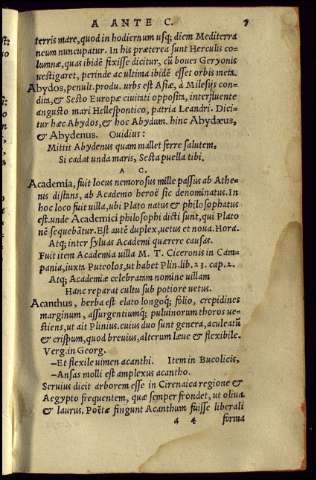 A ANTE C.
terris mare, quod in hodiernum usq; diem Mediterra
neum nuncupatur. In his præterea sunt Herculis co-
lumnæ, quas ibidē fixisse dicitur, cū boues Geryonis
vestigaret, perinde ac ultima ibidē esset orbis meta.
Abydos, penult. produ. urbs est Asiæ, à Milesijs con-
dita, & Sesto Europæ ciuitati opposita, interfluente
angusto mari Hellespontico, patria Leandri. Dici-
tur hæc Abydos, & hoc Abydum. hinc Abydæus,
& Abydenus. Ouidius:
Mittit Abydenus quam mallet ferre salutem,
Si cadat unda maris, Sesta puella tibi.
A C.
Academia, fuit locus nemorosus mille passus ab Athe-
nis distans, ab Academo heroë sic denominatus. In
hoc loco fuit villa, ubi Plato natus & philosophatus
est. unde Academici philosophi dicti sunt, qui Plato
nē sequebātur. Est autē duplex, vetus et noua. Hora.
Atq; inter syluas Academi quærere causas.
Fuit item Academia uilla M. T. Ciceronis in Cam-
pania, iuxta Puteolos, ut habet Plin. lib. 23. cap. 2.
Atq; Academiæ celebratam nomine uillam
Hanc reparat cultu sub potiore vetus.
Acanthus, herba est elato longoq; folio, crepidines
marginum, assurgentiumq; puluinorum thoros ue-
stiens, ut ait Plinius. cuius duo sunt genera, aculeatū
& crispum, quod breuius, alterum leue & flexibile.
Verg. in Georg.
-Et flexile uimen acanthi. Item in Bucolicis,
-Ansas molli est amplexus acantho.
Seruius dicit arborem esse in Cirenaica regione &
Aegypto frequentem, quæ semper frondet, ut oliua
& laurus. Poëtæ fingunt Acanthum fuisse liberali
a 4 forma